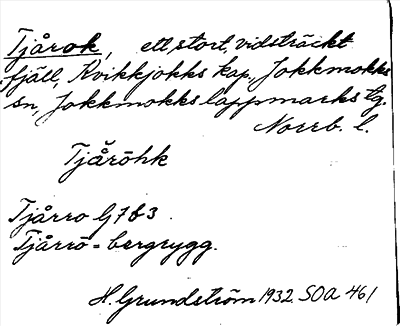 Tjårok, ett stort, vidsträckt
fjäll, Kvikkjokks kap., Jokkmokks
sn, Jokkmokks lappmarks tg.
Norrb. l.
Tjårōhk
Tjårro G763.
Tjårrō = bergrygg.
H. Grundström 1932 SOA 461